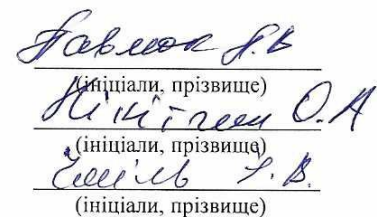 Павлюк Н.В
(ініціали, прізвище)
О.А
(ініціали, прізвище)
В.
(ініціали, прізвище)